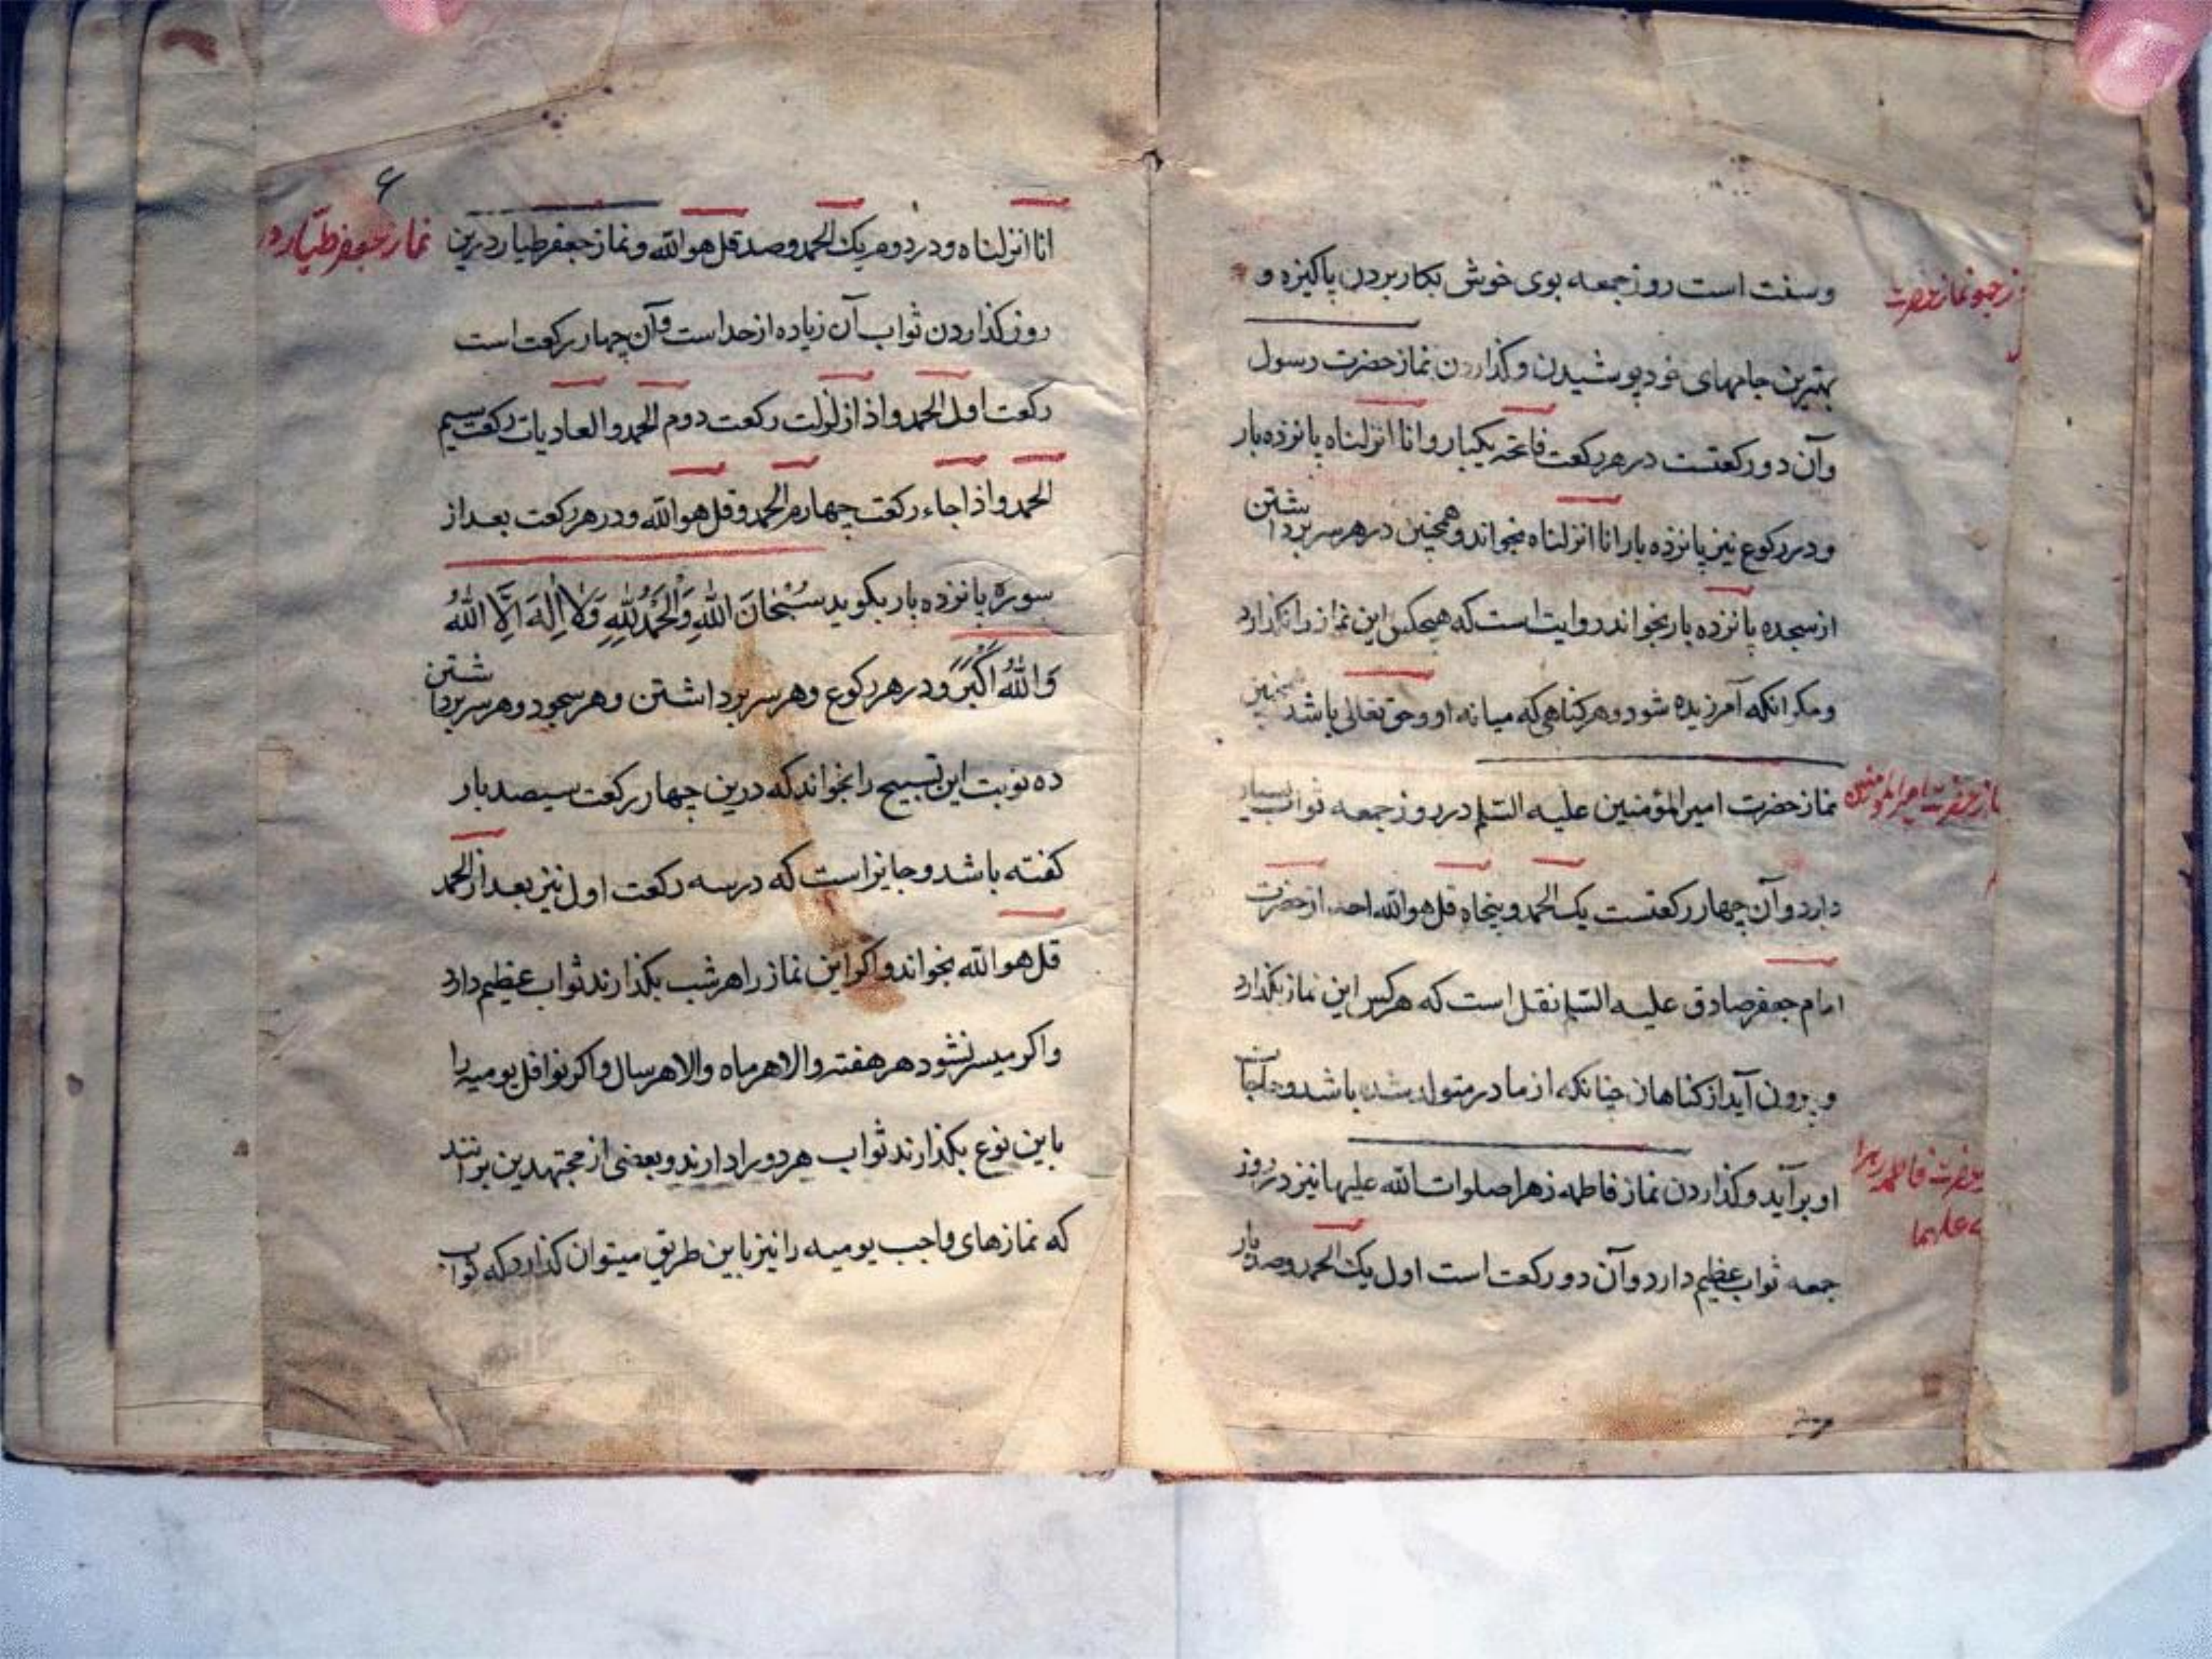 وسنت است روز جمعه بوی خوش بکار بردن پاکیزه و
بهترین جامهای خود پوشیدن وکذاردن نماز حضرت رسول
وآن دو رکعتست در هر رکعت فاتحه یکبار وانا انزلناه پانزده بار
ودر رکوع نیز پانزده بار انا انزلناه بخواند وهمچنین در هر سر برداشتن
از سجده پانزده بار بخواند روایت است که هیچکس این نماز را نکذارد
ومکر انکه آمرزیده شود وهر کناهی که میانه او وحق تعالی باشد
نماز حضرت امیر المؤمنین علیه السلم در روز جمعه ثواب بسیار
دارد وآن چهار رکعتست یک الحمد وپنجاه قل هو الله احد از حضرت
امام جعفر صادق علیه السلم نقل است که هر کس این نماز بکذارد
و برون آید از کناهان چنانکه از مادر متولد شده باشد وحاجات
او برآید وکذاردن نماز فاطمه زهرا صلوات الله علیها نیز در روز
جمعه ثواب عظیم دارد وآن دو رکعت است اول یک الحمد وصد بار
نماز حضرت امیر المومنین
حضرت فاطمه زهرا
علیها
۶
نماز جعفر طیار در
انا انزلناه ودر دوم یک الحمد وصد قل هو الله ونماز جعفر طیار درین
روز کذاردن ثواب آن زیاده از حد است وآن چهار رکعت است
رکعت اول الحمد واذا زلزلت رکعت دوم الحمد والعادیات رکعت سیم
الحمد واذا جاء رکعت چهارم الحمد وقل هو الله ودر هر رکعت بعد از
سوره پانزده بار بکوید سُبْحَانَ اللهِ وَالْحَمْدُ لِلّهِ وَلَا اِلٰهَ اِلَّا اللهُ
وَاللهُ اَکْبَرُ ودر هر رکوع وهر سر برداشتن وهر سجود وهر سر برداشتن
ده نوبت این تسبیح را بخواند که درین چهار رکعت سیصد بار
کفته باشد وجایز است که در سه رکعت اول نیز بعد از الحمد
قل هو الله بخواند واکر این نماز را هر شب بکذارند ثواب عظیم دارد
واکر میسر نشود هر هفته والا هر ماه والا هر سال واکر نوافل یومیه را
باین نوع بکذارند ثواب هر دو را دارند وبعضی از مجتهدین برانند
که نمازهای واجب یومیه را نیز باین طریق میتوان کذارد که ثواب